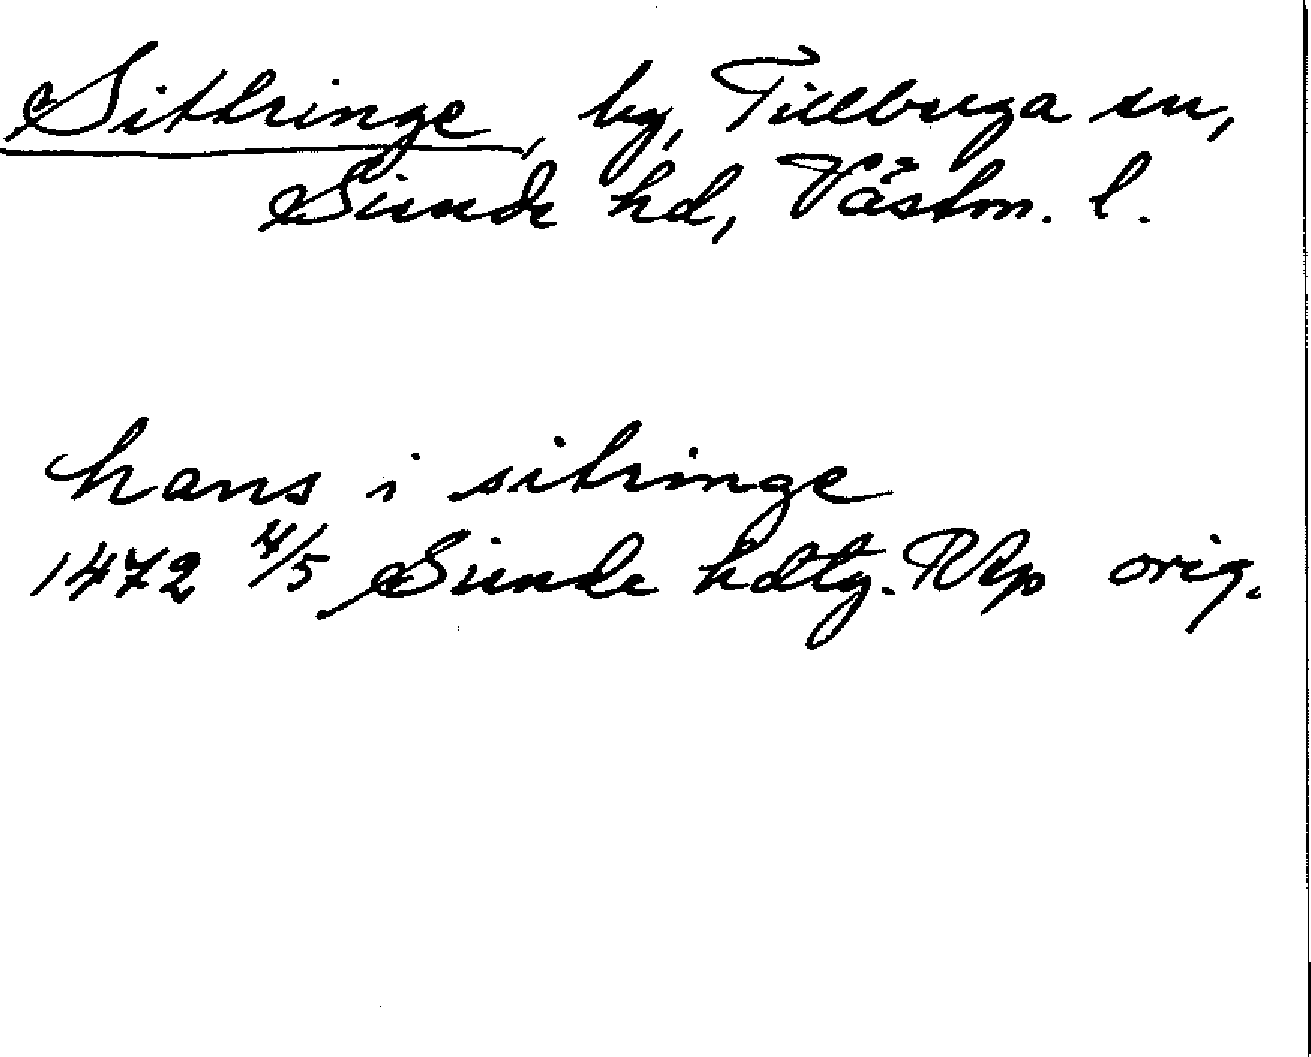 Sittringe, by, Tillbruga sn,
Siende hd, Västm. l.
hans i sitringe
1472 4/5 Siende hdtg. RAp orig.